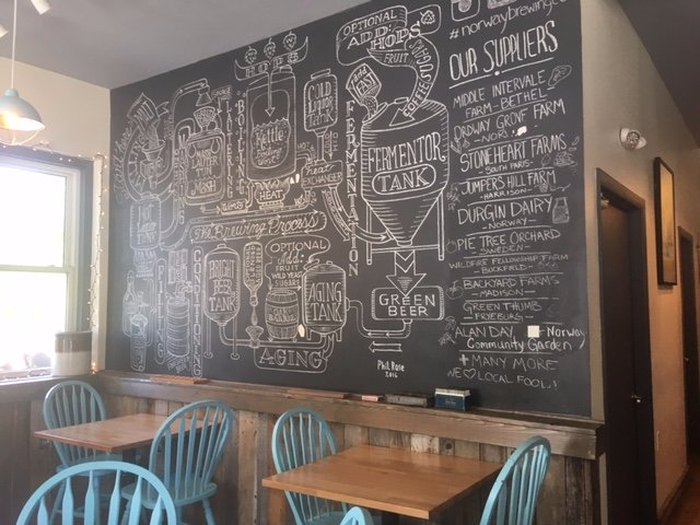 MALT
HOT
LIQUOR
TANK
MASH
LAUTER
TUN
MASH
HOPS
Kettle
BOILING
HEAT
COLD
LIQUOR
TANK
HEAT
EXCHANGER
The Brewing Process
FERMENTATION
OPTIONAL
ADD: HOPS
FRUIT
COFFEE
add
YEAST
FERMENTOR
TANK
GREEN
BEER
OPTIONAL
Add:
FRUIT
WILD YEAST
SUGARS
AGING
TANK
AGING
BRIGHT
BEER
TANK
Phil Rose
2016
#norwaybrewing
OUR SUPPLIERS
MIDDLE INTERVALE
FARM - BETHEL -
ORDWAY GROVE FARM
STONEHEART FARMS
- SOUTH PARIS -
JUMPERS HILL FARM
- HARRISON -
DURGIN DAIRY
- NORWAY -
PIE TREE ORCHARD
- SWEDEN -
WILDFIRE FELLOWSHIP FARM
- BUCKFIELD -
BACKYARD FARMS
- MADISON -
GREEN THUMB
- FRYEBURG -
ALAN DAY - NORWAY
COMMUNITY GARDEN
+ MANY MORE
WE ♡ LOCAL FOOD!